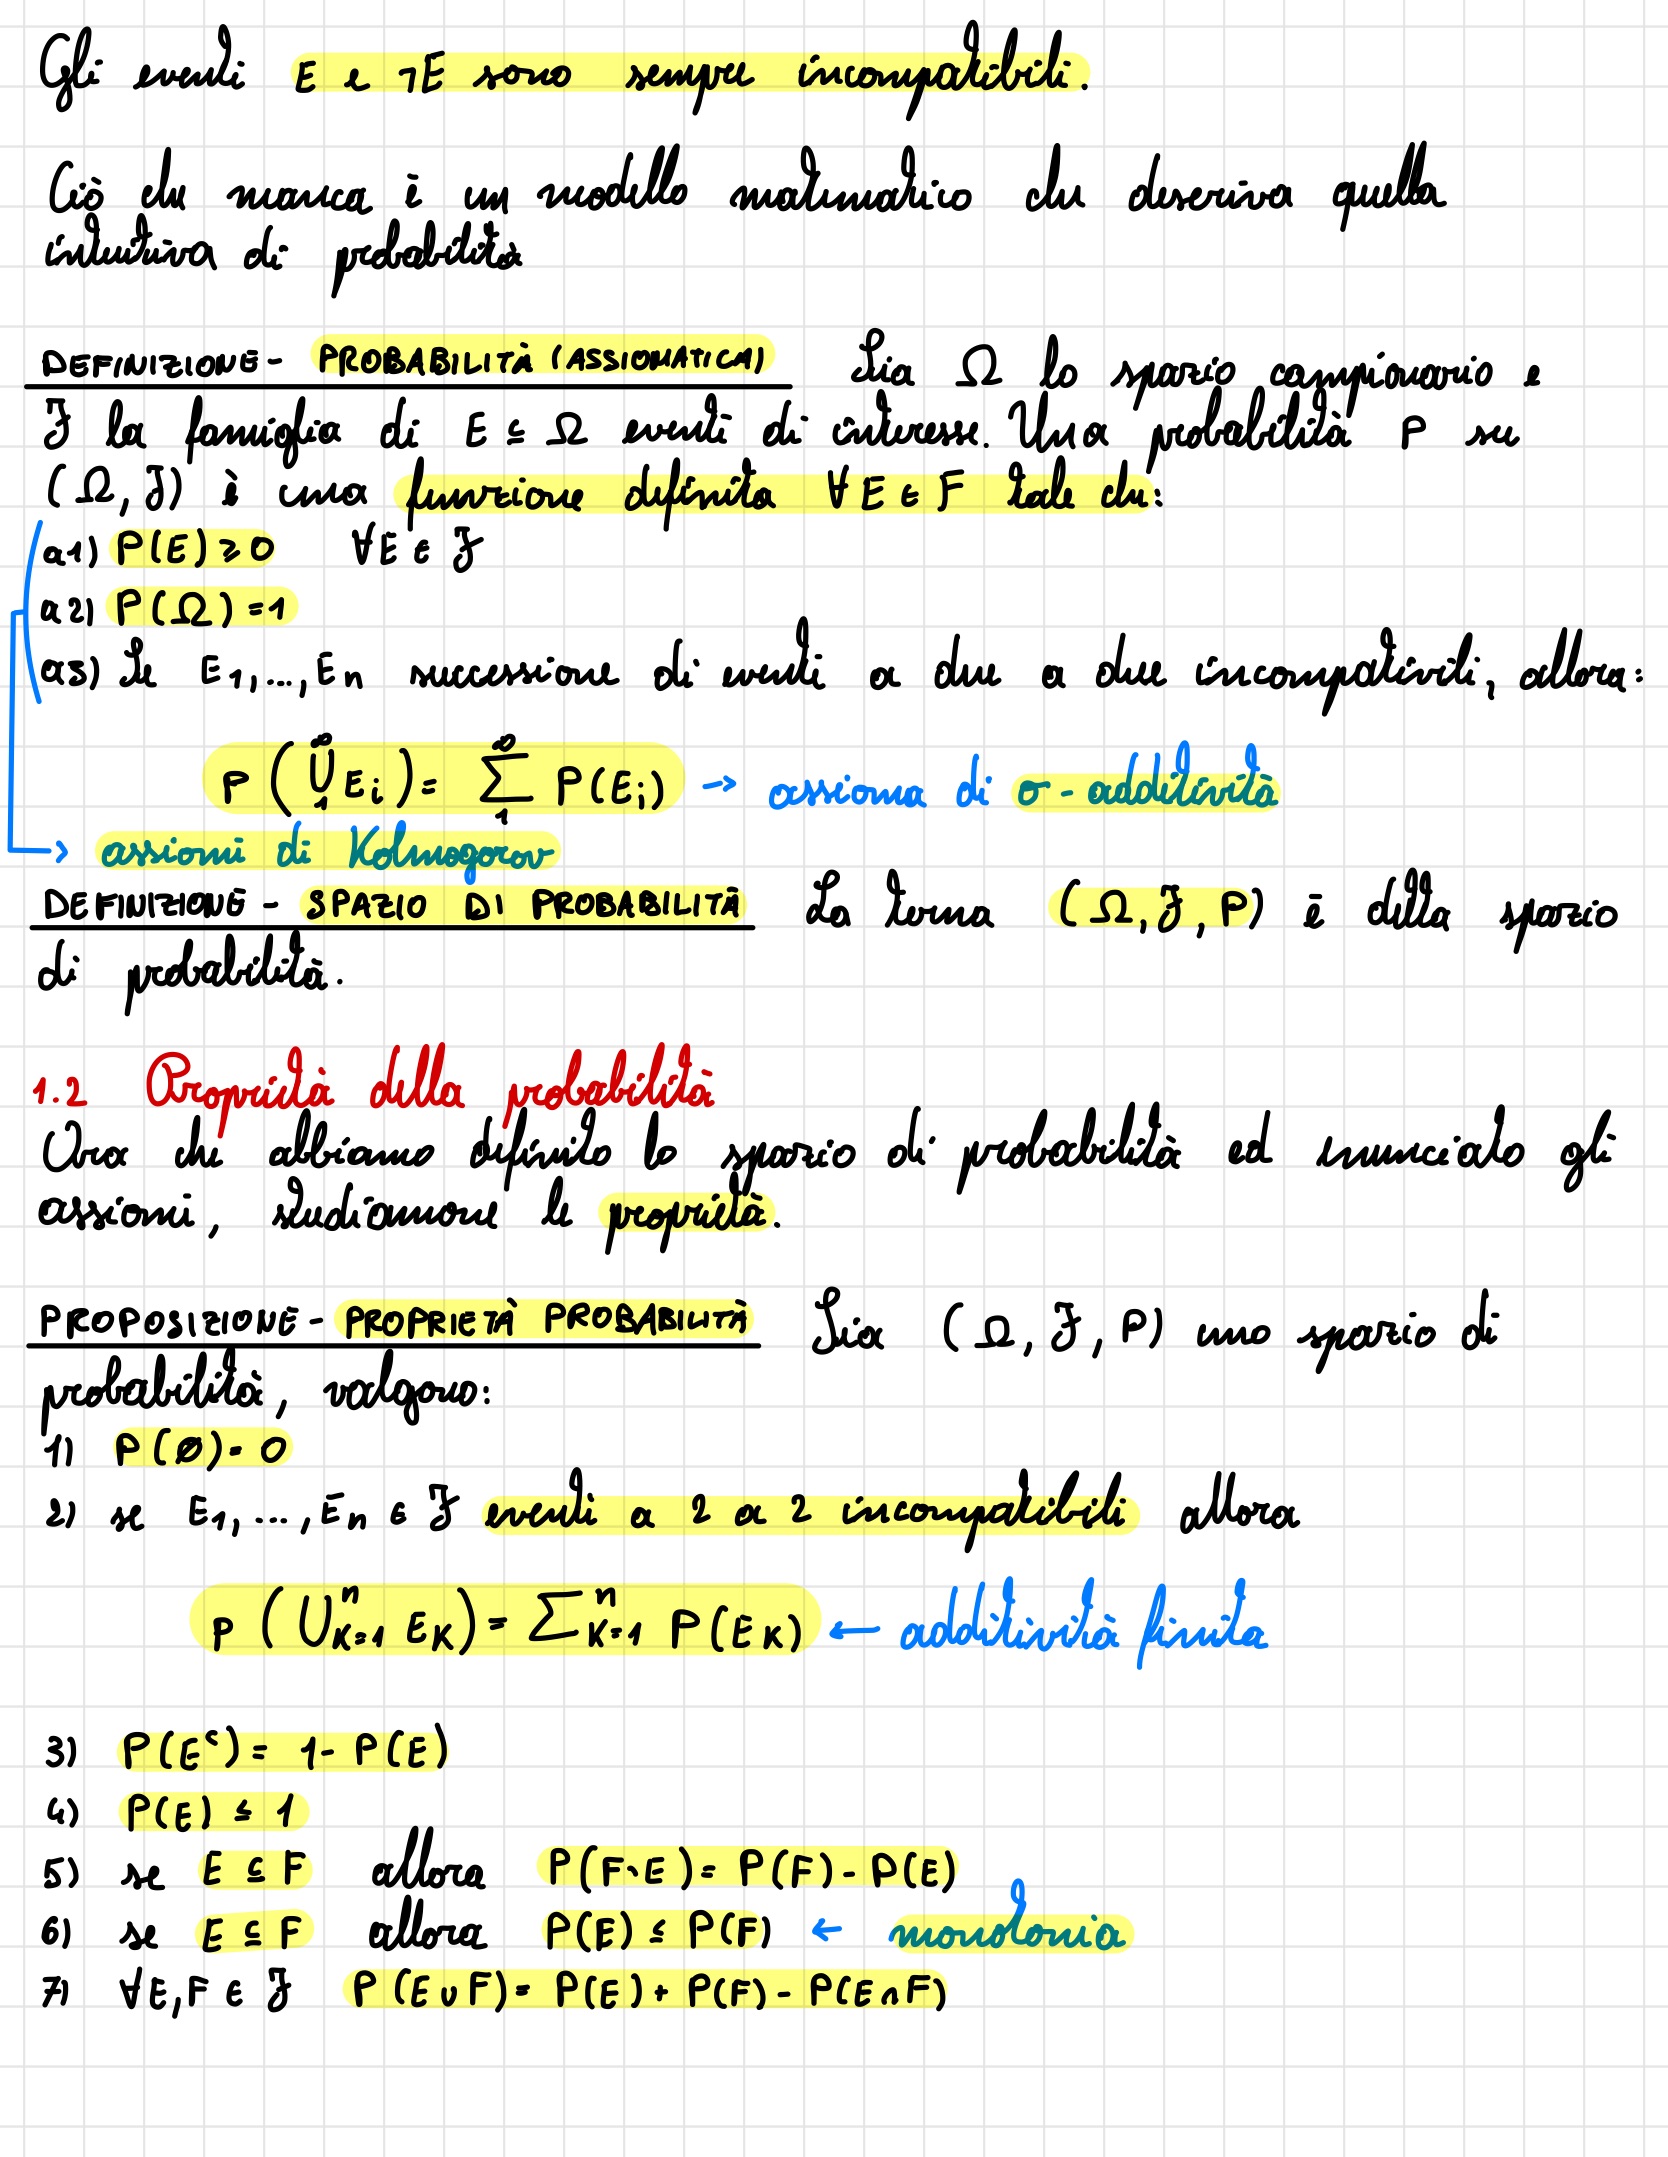 Gli eventi E e ¬E sono sempre incompatibili.
Ciò che manca è un modello matematico che descriva quella
intuitiva di probabilità
DEFINIZIONE - PROBABILITÀ (ASSIOMATICA) Sia Ω lo spazio campionario e
ℱ la famiglia di E ⊆ Ω eventi di interesse. Una probabilità P su
(Ω, ℱ) è una funzione definita ∀ E ∈ F tale che:
a1) P(E) ≥ 0 ∀E ∈ ℱ
a2) P(Ω) = 1
a3) Se E₁, ..., Eₙ successione di eventi a due a due incompativili, allora:
P (⋃₁^∞ Eᵢ) = ∑₁^∞ P(Eᵢ) → assioma di σ-additività
→ assiomi di Kolmogorov
DEFINIZIONE - SPAZIO DI PROBABILITÀ La terna (Ω, ℱ, P) è detta spazio
di probabilità.
1.2 Proprietà della probabilità
Ora che abbiamo definito lo spazio di probabilità ed enunciato gli
assiomi, studiamone le proprietà.
PROPOSIZIONE - PROPRIETÀ PROBABILITÀ Sia (Ω, ℱ, P) uno spazio di
probabilità, valgono:
1) P(∅) = 0
2) se E₁, ..., Eₙ ∈ ℱ eventi a 2 a 2 incompatibili allora
P (⋃ₖ₌₁ⁿ Eₖ) = ∑ₖ₌₁ⁿ P(Eₖ) ← additività finita
3) P(Eᶜ) = 1 - P(E)
4) P(E) ≤ 1
5) se E ⊆ F allora P(F∖E) = P(F) - P(E)
6) se E ⊆ F allora P(E) ≤ P(F) ← monotonia
7) ∀E, F ∈ ℱ P(E ∪ F) = P(E) + P(F) - P(E ∩ F)